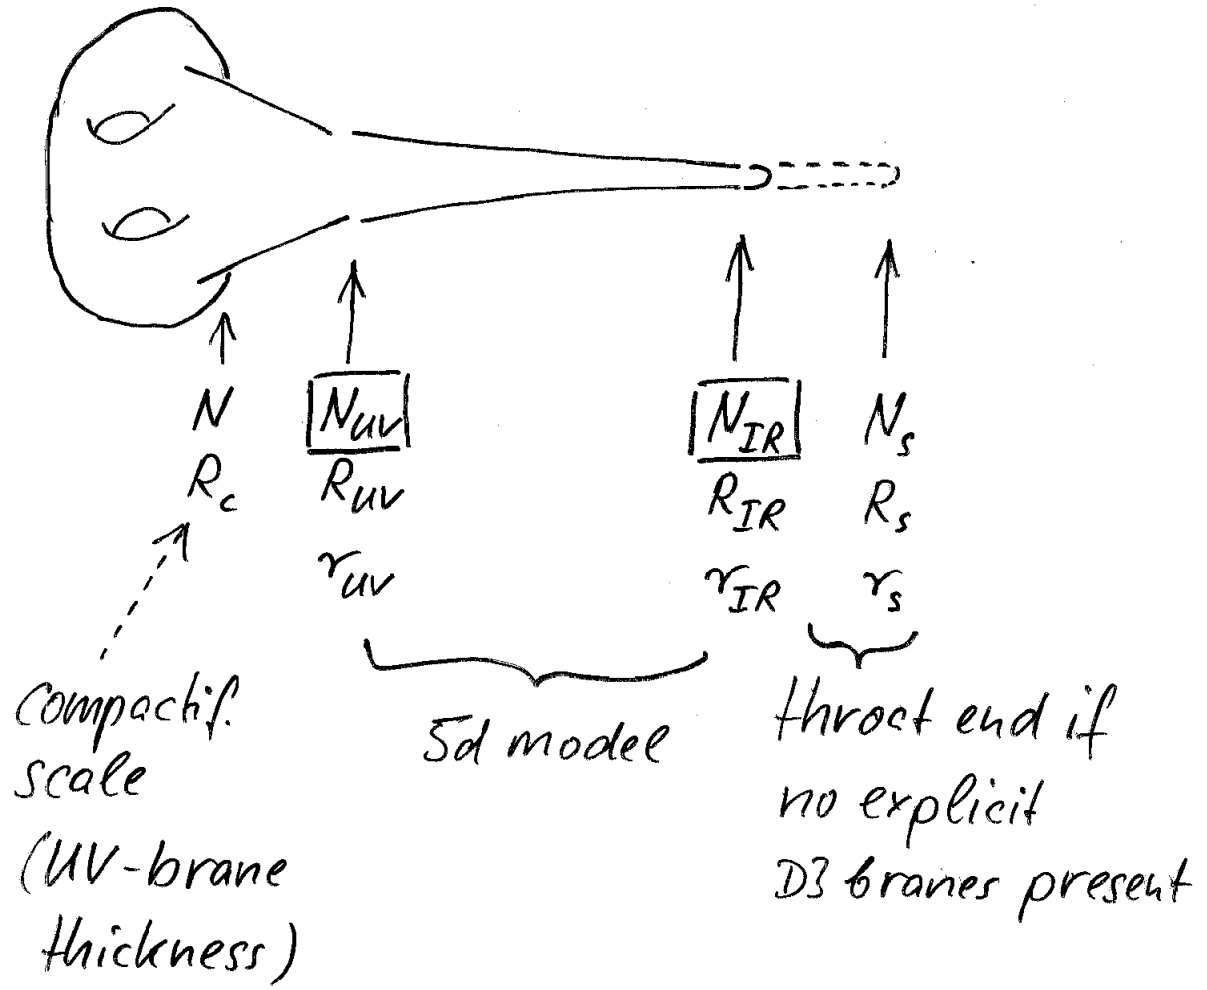 N N_UV N_IR N_s
R_c R_UV R_IR R_s
r_UV r_IR r_s
compactif.
scale
(UV-brane
thickness)
5d model
throat end if
no explicit
D3 branes present